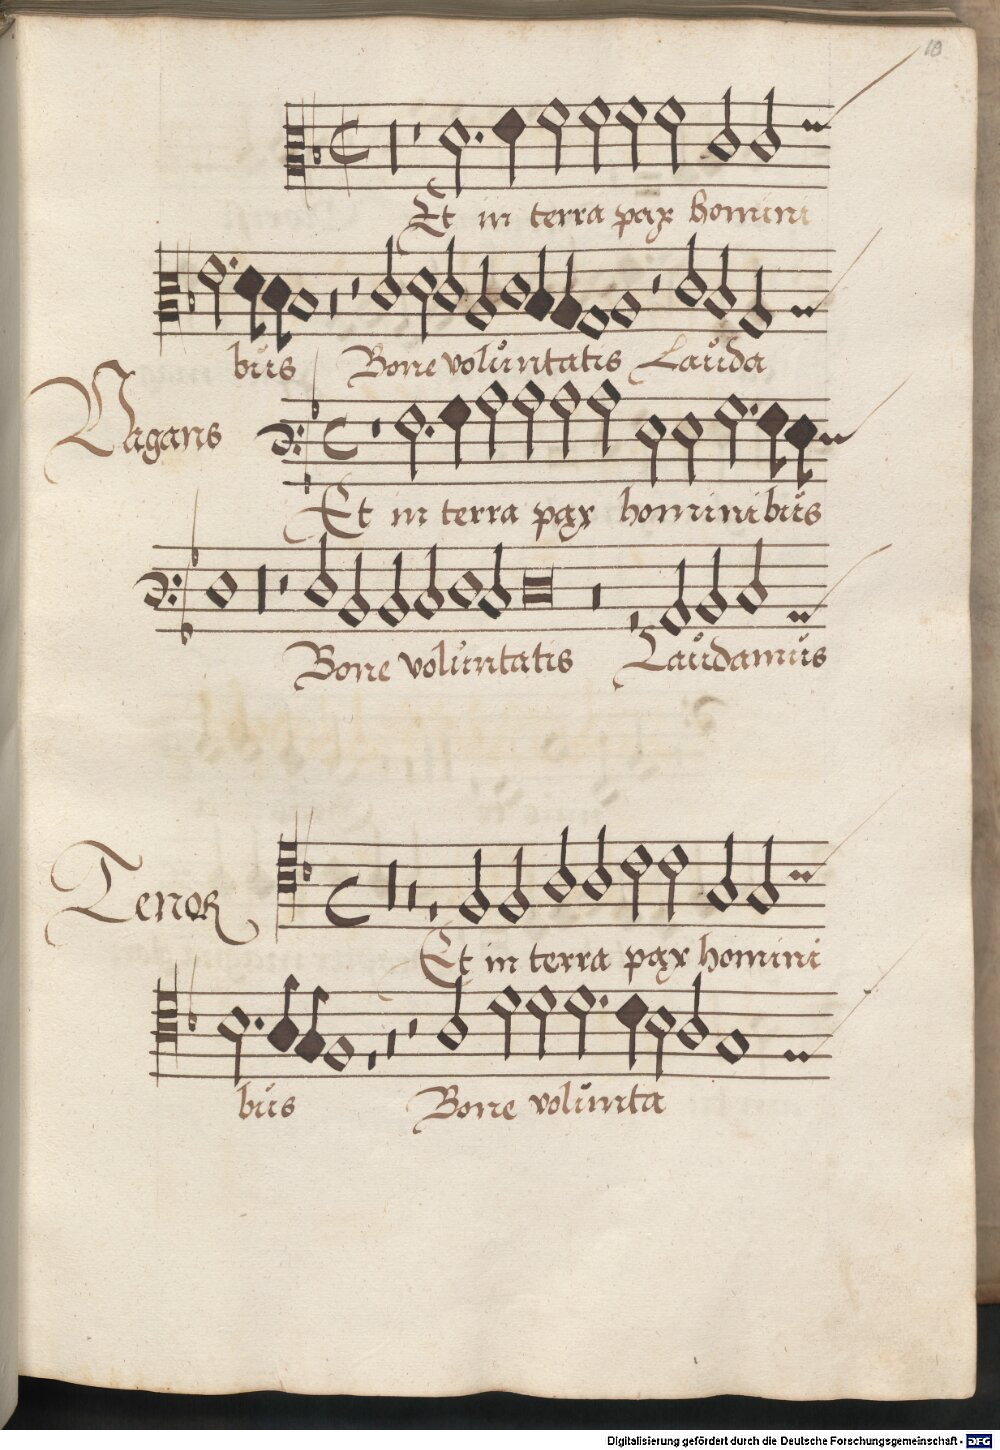 10
Et in terra pax homini
bus Bone voluntatis Lauda
Vagans
Et in terra pax hominibus
Bone voluntatis Laudamus
Tenor
Et in terra pax homini
bus Bone volunta
Digitalisierung gefördert durch die Deutsche Forschungsgemeinschaft - DFG